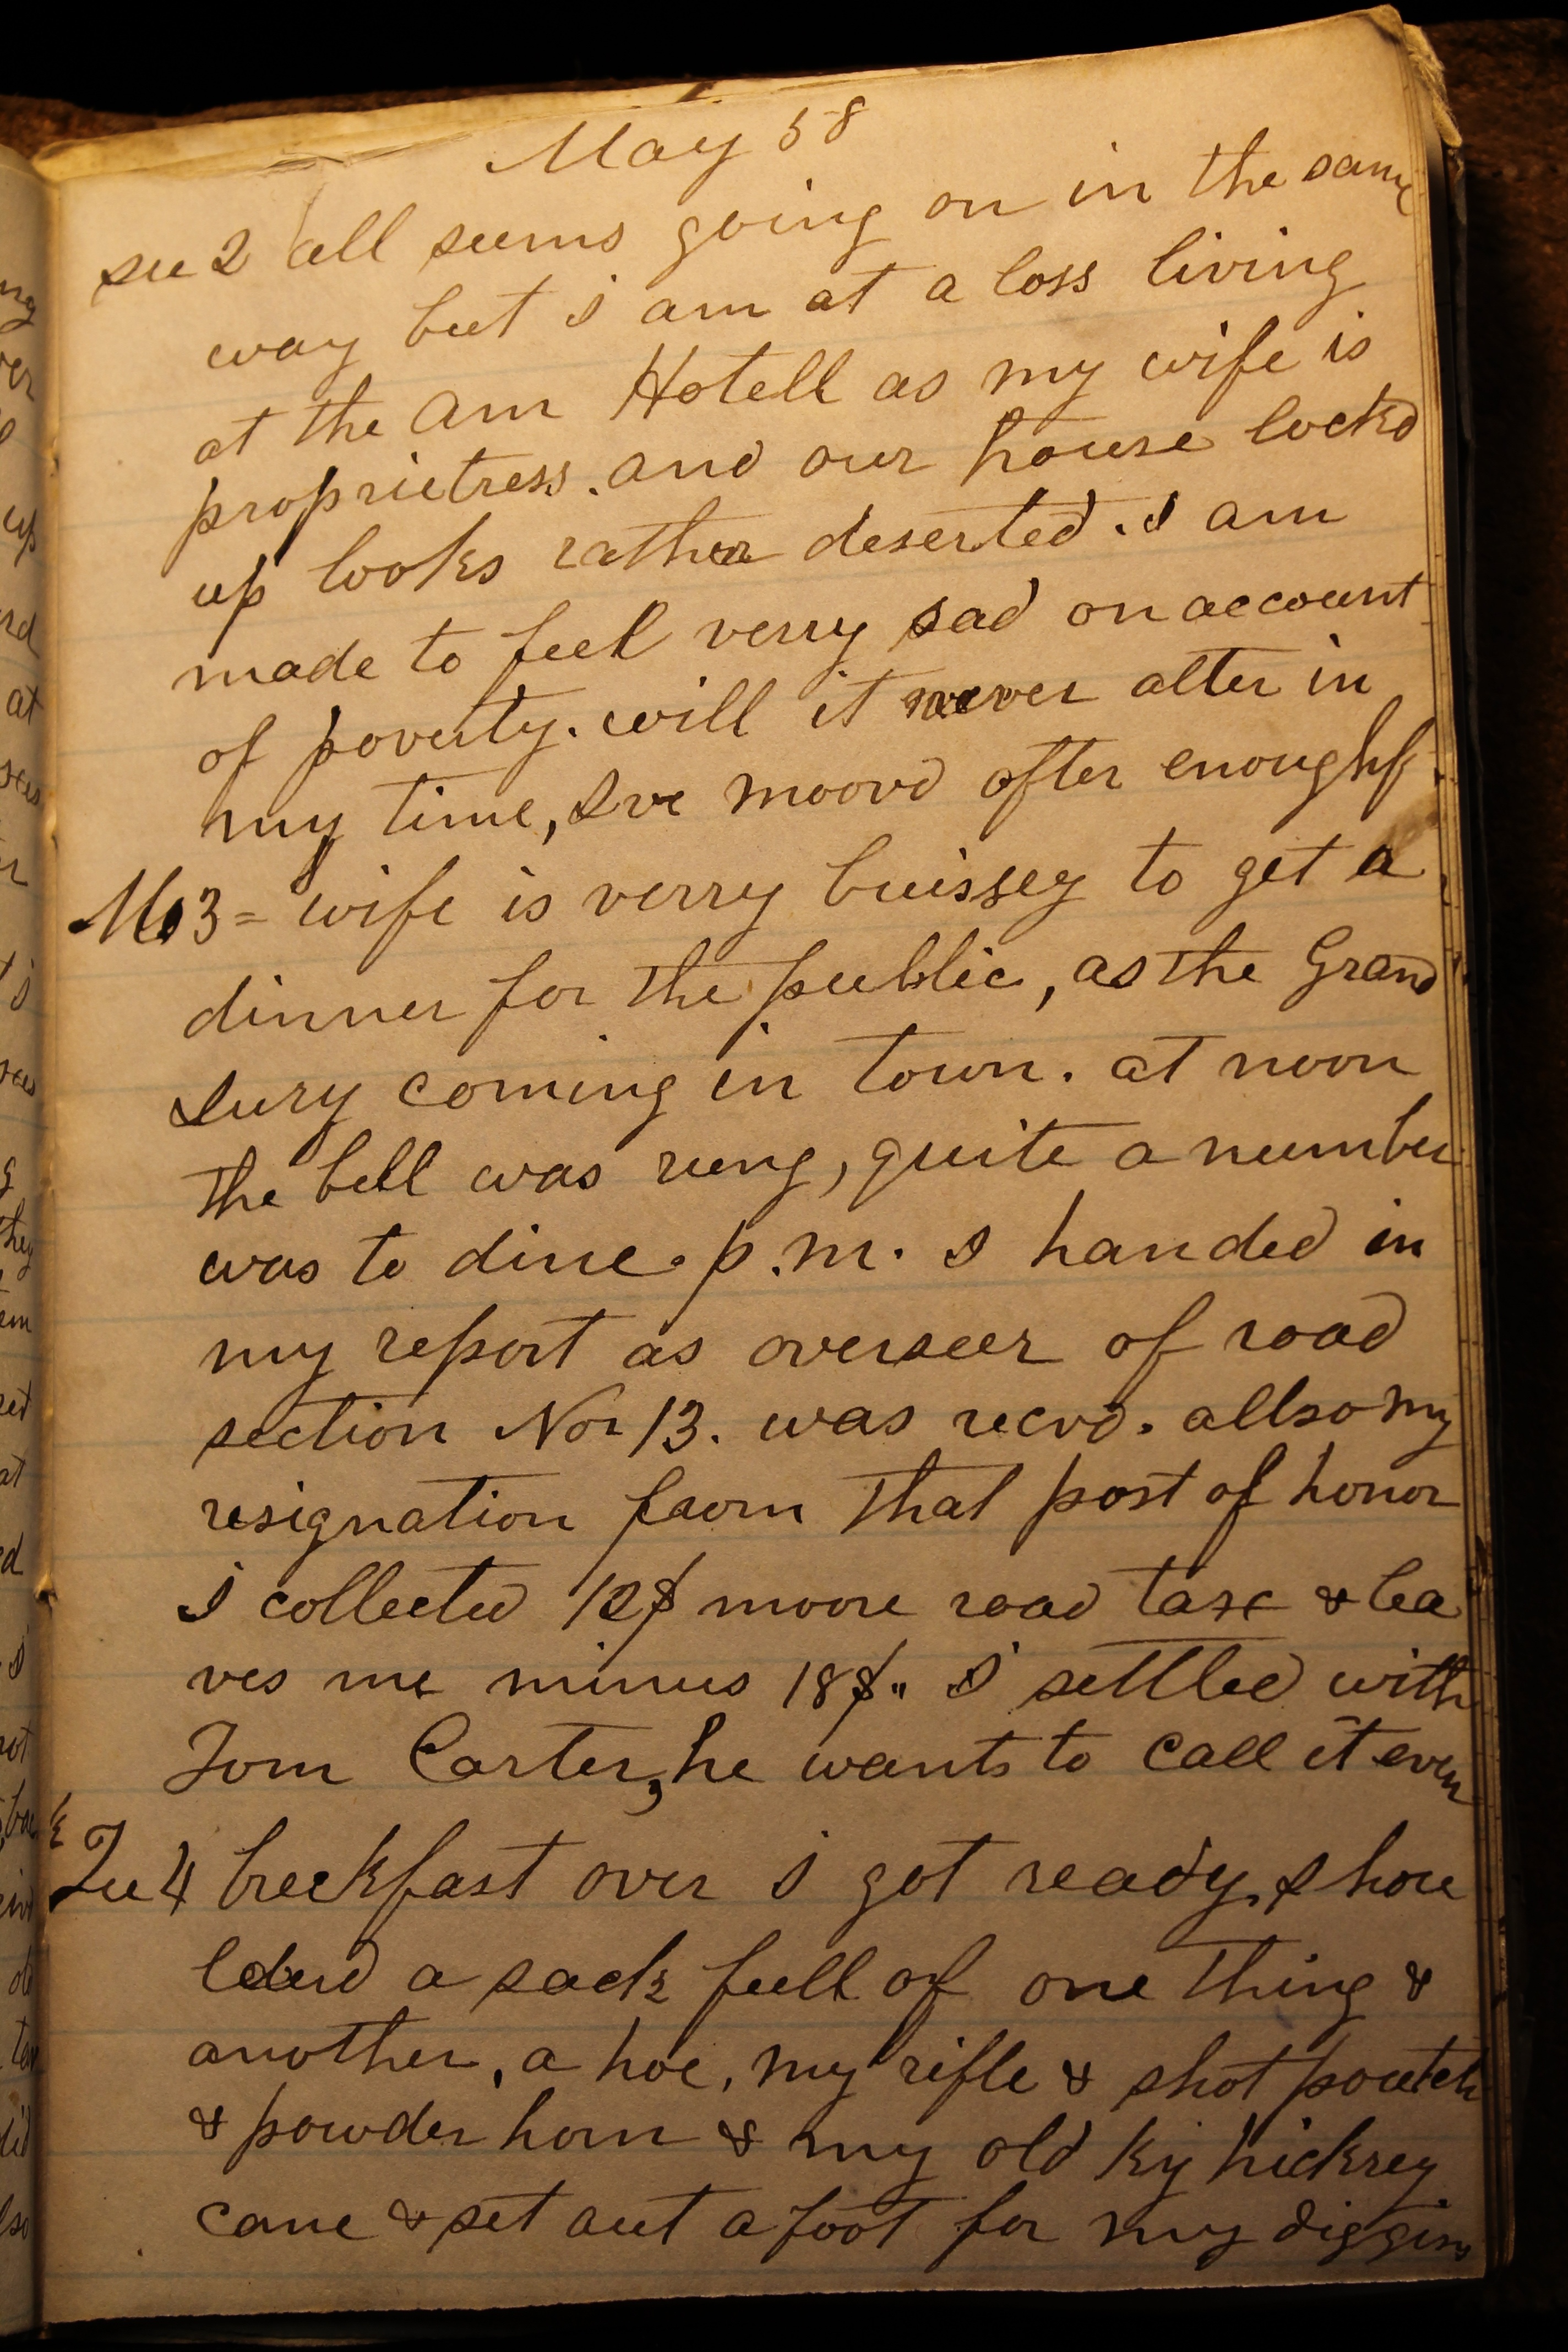 May 58
su 2 all seems going on in the same
way but i am at a loss living
at the am Hotell as my wife is
proprietress. and our house lockd
up looks rather deserted. I am
made to feel verry sad on account
of poverty. will it never alter in
my time, Ive moovd ofter enoughf
Mo 3 = wife is verry buissey to get a
dinner for the public, as the Grand
Jury coming in town. at noon
the bell was rung, quite a number
was to dine. p.m. I handed in
my report as overseer of road
section Nor 13. was recvd. allso my
resignation from that post of honor
I collected 12$ moore road tax & lea
ves me minus 18$" I settled with
Tom Carter, he wants to call it even
Tu 4 breckfast over I got ready, shou
lderd a sack full of one thing &
another, a hoe, my rifle & shot poutch
& powder horn & my old ky hickrey
cane & set out a foot for my diggins